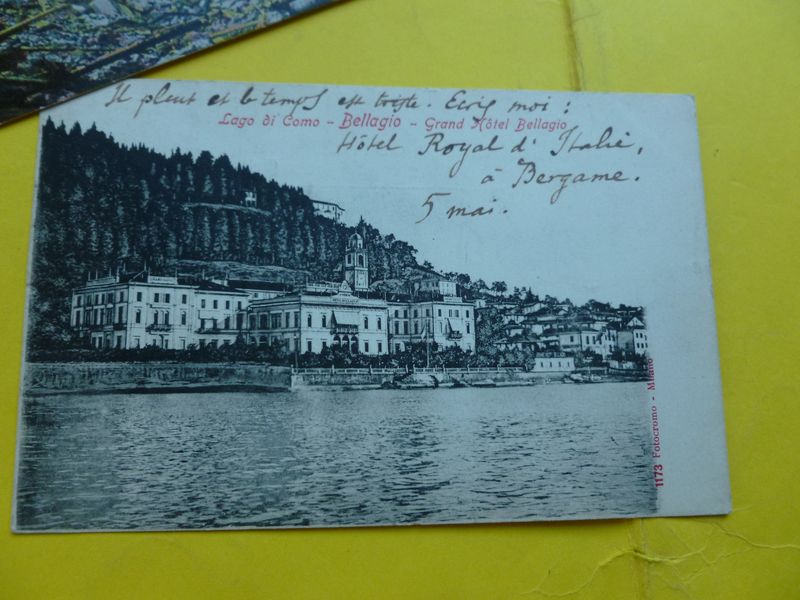 Il pleut et le temps est triste. Ecris moi :
Lago di Como - Bellagio - Grand Hôtel Bellagio
Hôtel Royal d'Italie,
à Bergame.
5 mai.
1173 Fotocromo - Milano